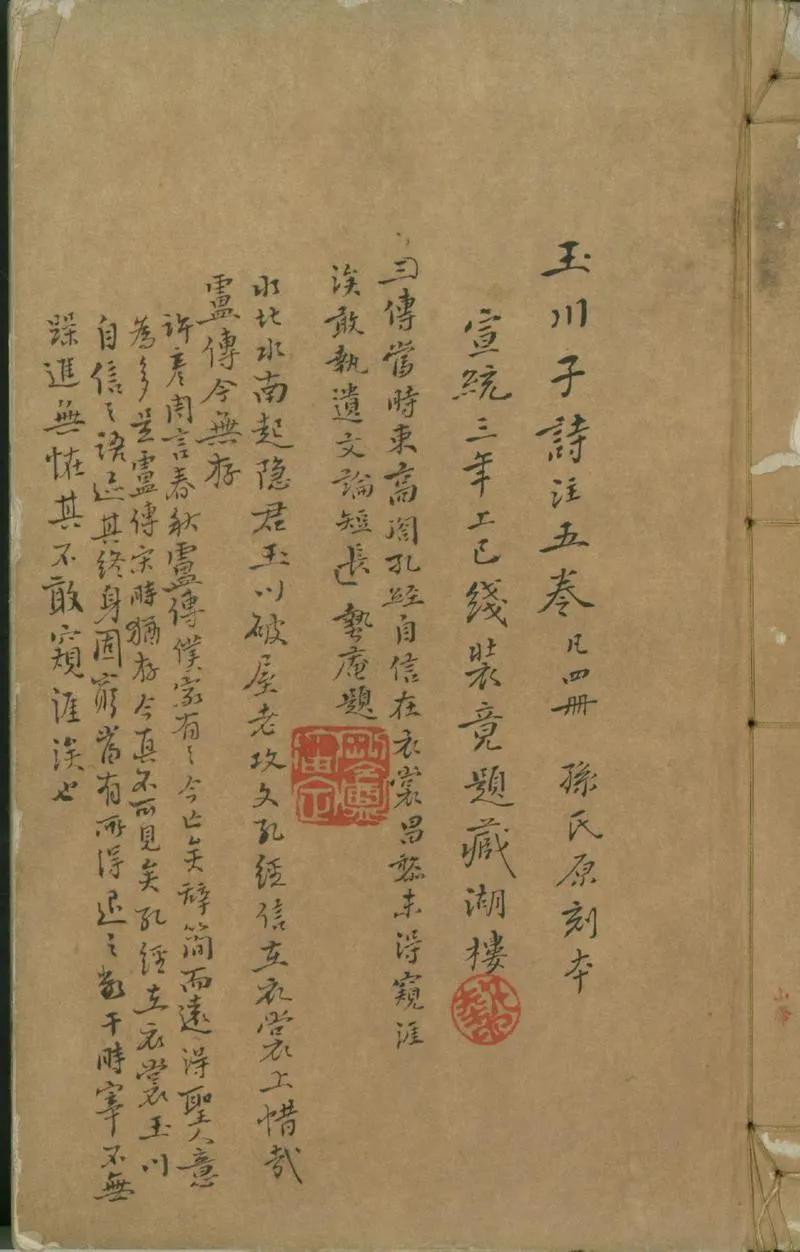 玉川子詩注五卷凡四冊 孫氏原刻本
宣統三年上巳綫裝竟題藏湖樓
三傳當時束高閣孔經自信在衣裳昌黎未得窺涯
涘敢執遺文論短長 藝庵題
水北水南起隐君玉川破屋老攻文孔經信在衣裳上惜哉
盧傳今無存
許彥周言春秋盧傳僕家有之今亡矣辭簡而遠得聖人意
為多是盧傳宋時猶存今真不可見矣孔經在衣裳玉川
自信之語迹其終身固窮當有所得退之數干時宰不無
躁進無怪其不敢窺涯涘也